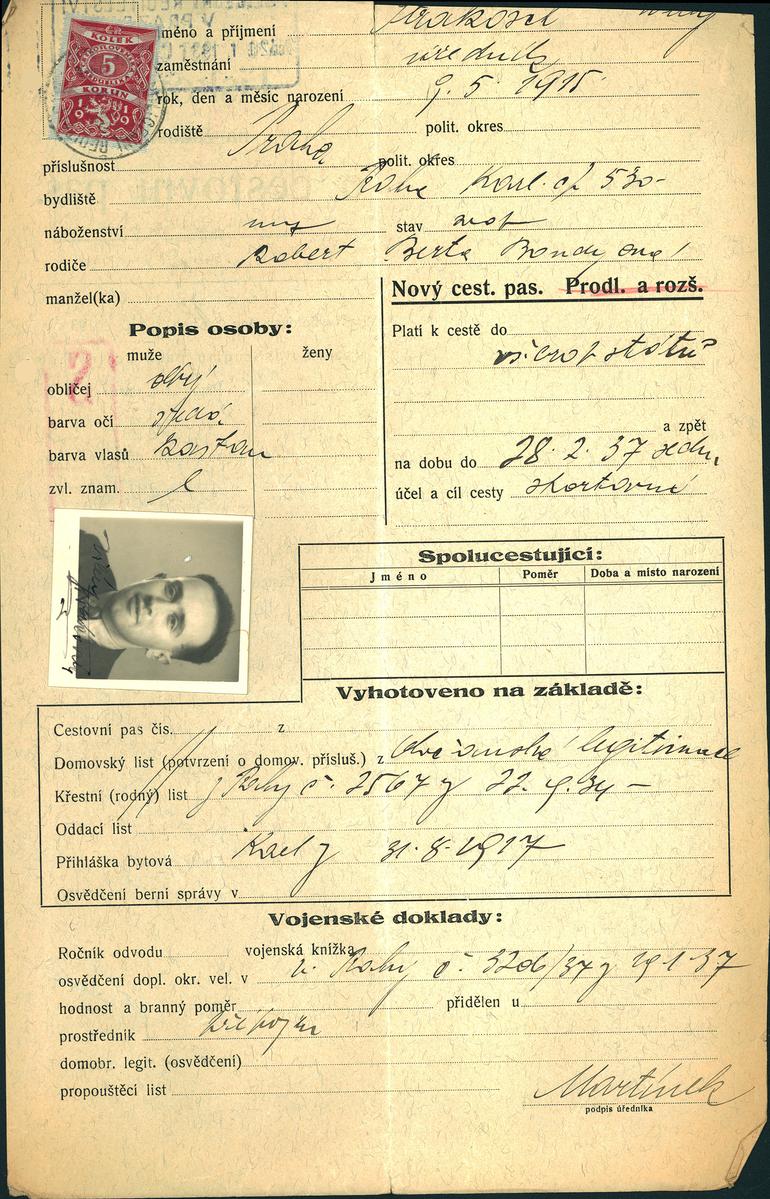 ČR
KOLEK
5
KORUN
1919
jméno a příjmení
zaměstnání úředník
rok, den a měsíc narození 9. 5. 1915
rodiště Praha polit. okres
příslušnost polit. okres
bydliště Praha Karl. čp 530-
náboženství stav
rodiče Robert Berta Bondy
manžel(ka)
Nový cest. pas. Prodl. a rozš.
Popis osoby:
muže ženy
obličej
barva očí
barva vlasů kaštan
zvl. znam.
Platí k cestě do
států
a zpět
na dobu do 28. 2. 37
účel a cíl cesty
Spolucestující:
Jméno Poměr Doba a místo narození
Vyhotoveno na základě:
Cestovní pas čís. z
Domovský list (potvrzení o domov. přísluš.) z občanská legitimace
Křestní (rodný) list Prahy č. 2567 z 22. 9. 34 -
Oddací list
Přihláška bytová Karl z 31. 8. 1917
Osvědčení berní správy v
Vojenské doklady:
Ročník odvodu vojenská knížka
osvědčení dopl. okr. vel. v v. Prahy č. 326/37 z 29 1 37
hodnost a branný poměr přidělen u
prostředník
domobr. legit. (osvědčení)
propouštěcí list
Martínek
podpis úředníka